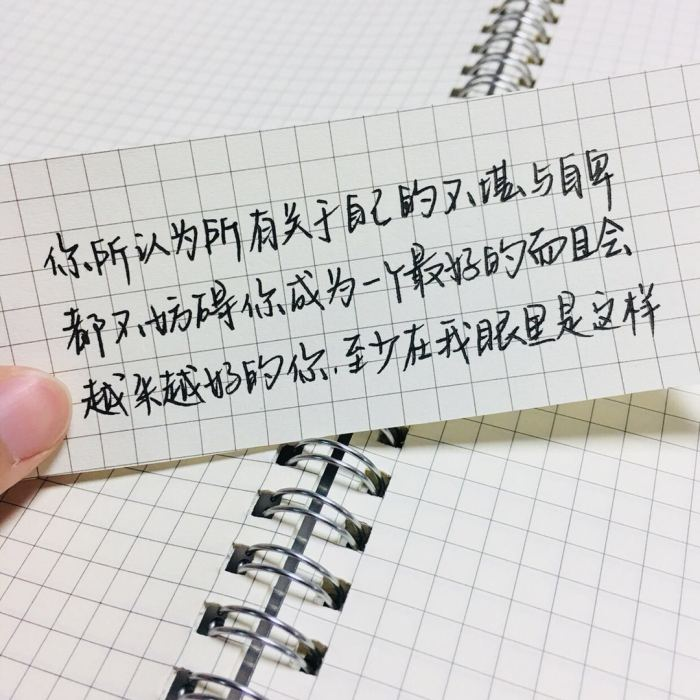 你所认为所有关于自己的不堪与自卑
都不妨碍你成为一个最好的而且会
越来越好的你.至少在我眼里是这样